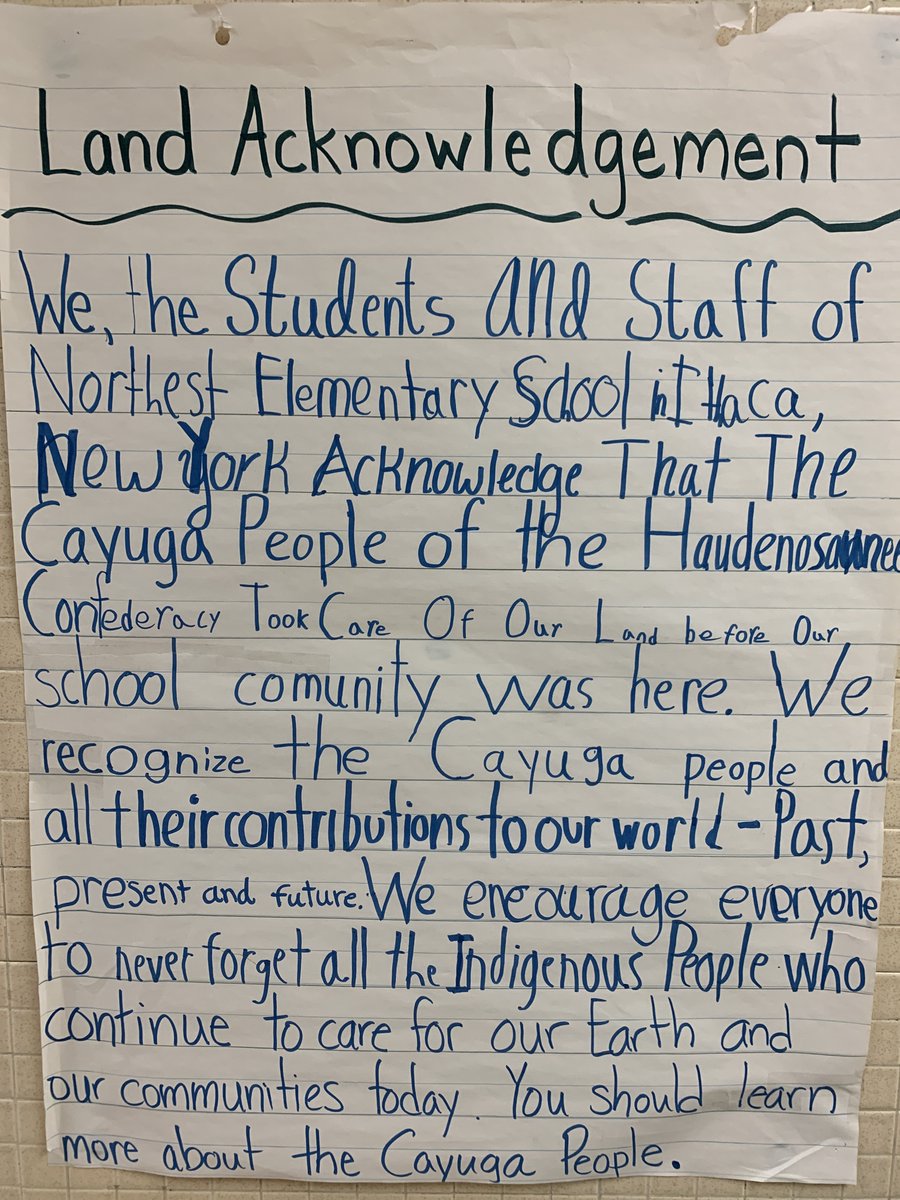 Land Acknowledgement
We, the Students and Staff of
Northest Elementary School in Ithaca,
New York Acknowledge That The
Cayuga People of the Haudenosaunee
Confederacy Took Care Of Our Land before Our
school comunity was here. We
recognize the Cayuga people and
all their contributions to our world - Past,
present and future. We encourage everyone
to never forget all the Indigenous People who
continue to care for our Earth and
our communities today. You should learn
more about the Cayuga People.